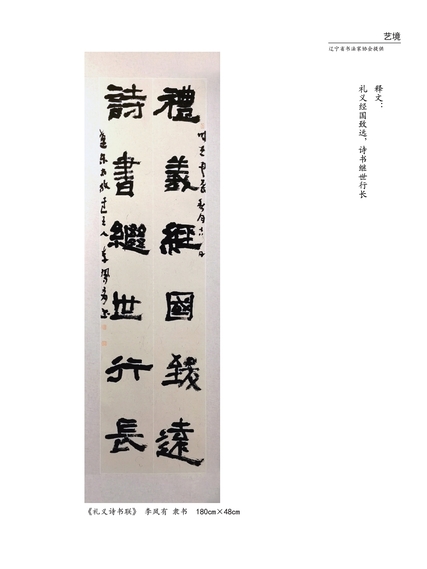 艺境
辽宁省书法家协会提供
释文：
礼义经国致远，诗书继世行长
禮義經國致遠
詩書繼世行長
《礼义诗书联》 李凤有 隶书 180cm×48cm